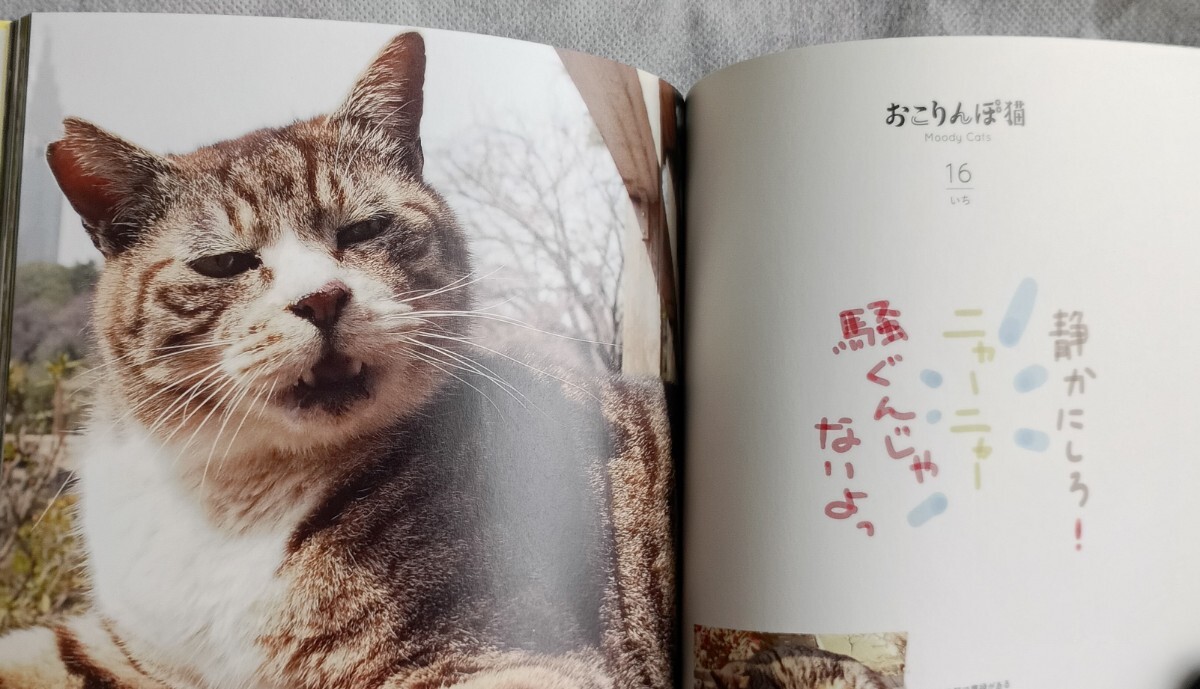 おこりんぼ猫
Moody Cats
16
いち
静かにしろ!
ニャーニャー
騒ぐんじゃ
ないよっ